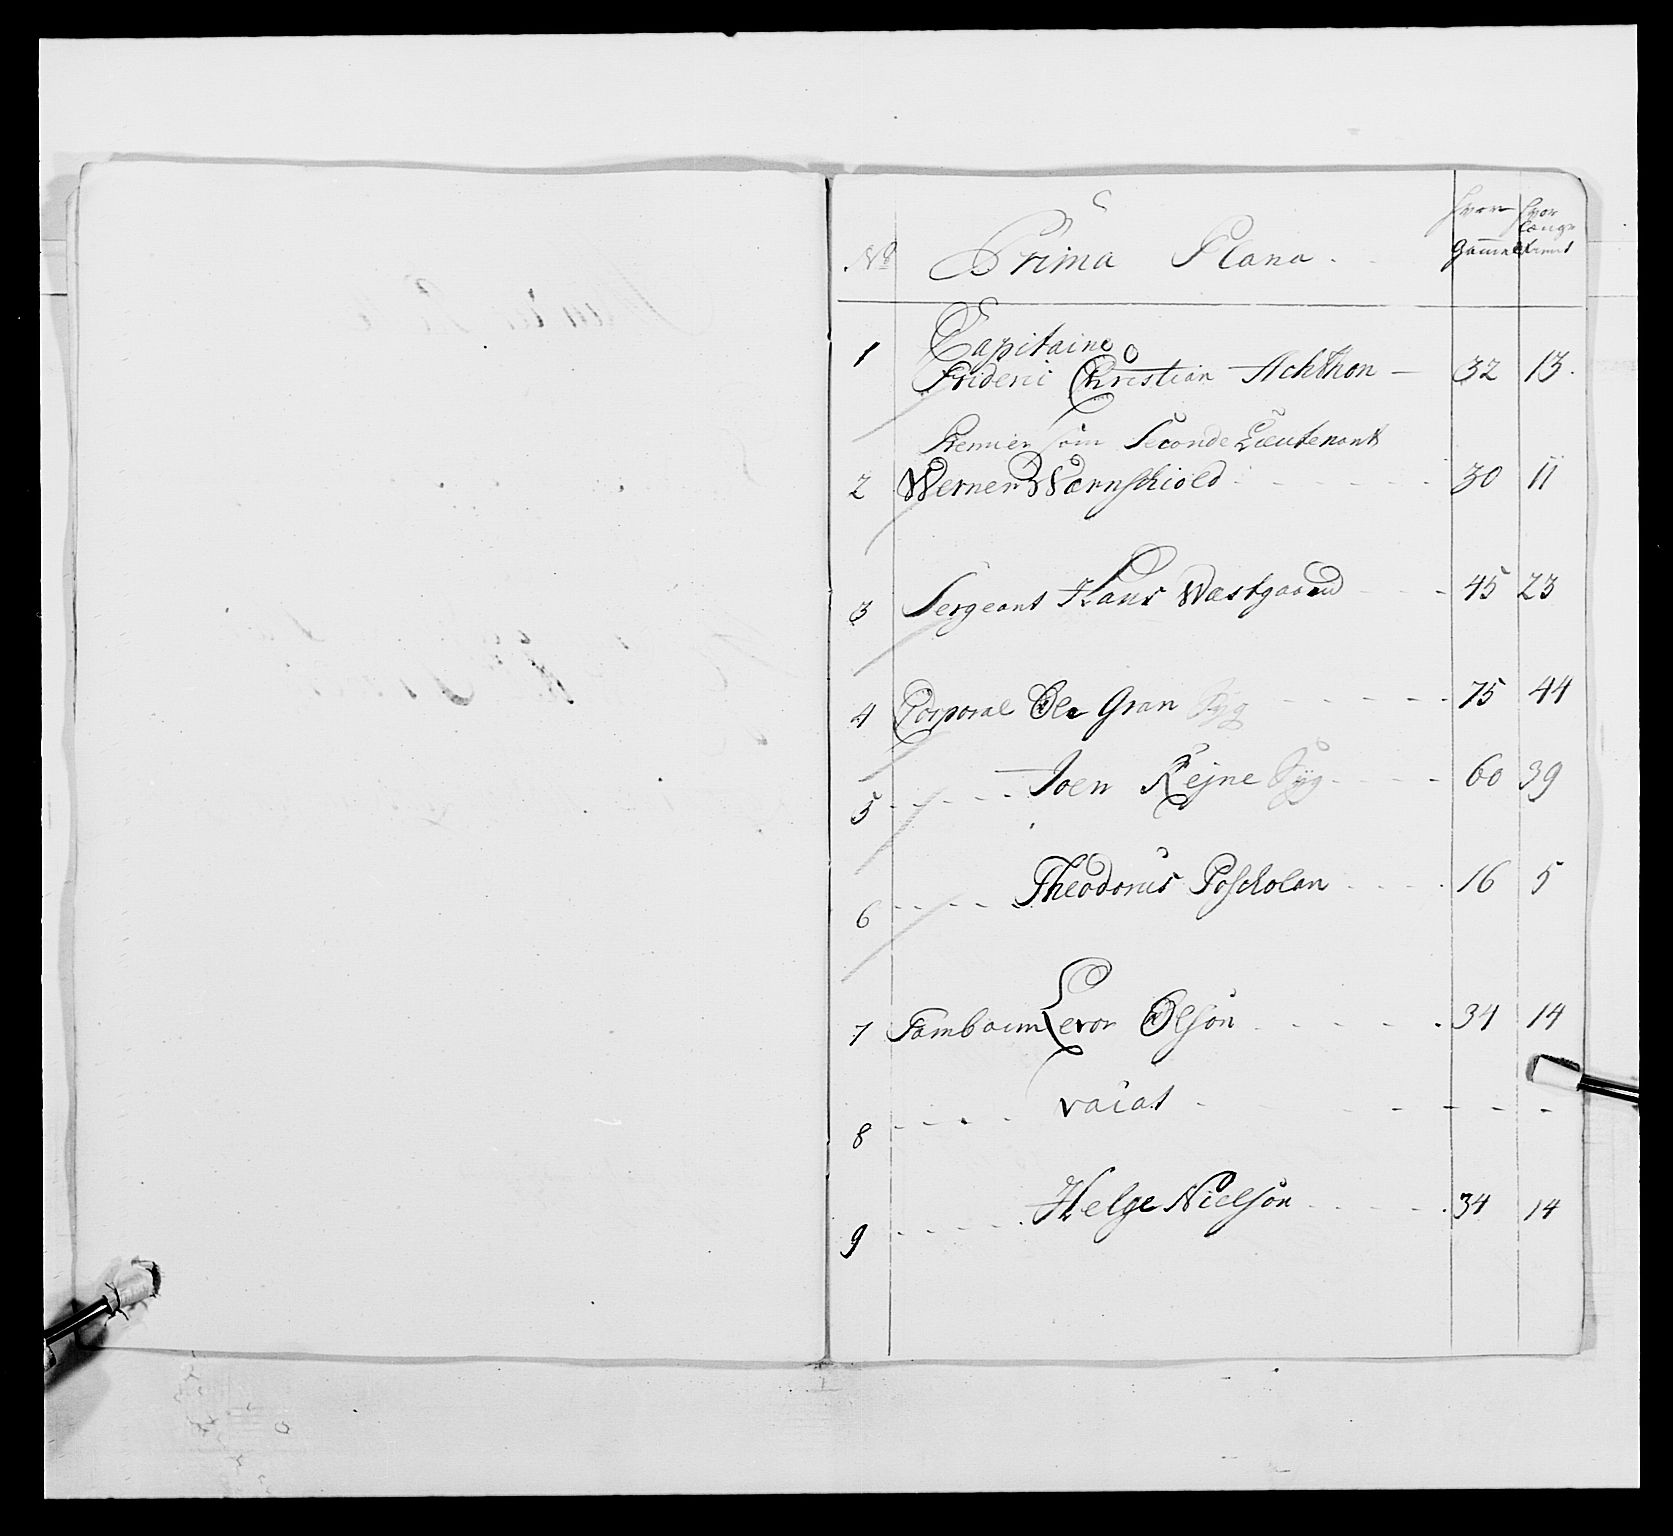 No Prima Plana . Hvor Gammel Hvor Længe tient
1 Capitaine
Frideric Christian Achthon — 32 13.
Premier som Seconde Lieutenant
2 Werner Wærnschiold - - - - - 30 11
3 Sergeant Hans Wæstgaard - - - 45 23
4 Corporal Ole Gran Syg - - - - 75 44
5 - - - - Joen Rejne Syg - - - - 60 39
6 - - - - Theodorus Poscholan - - - - 16 5
7 Tambour Evor Olson - - - - - 34 14
8 - - - - vacat - - - - - -
9 - - - - Helge Nielson - - - - 34 14